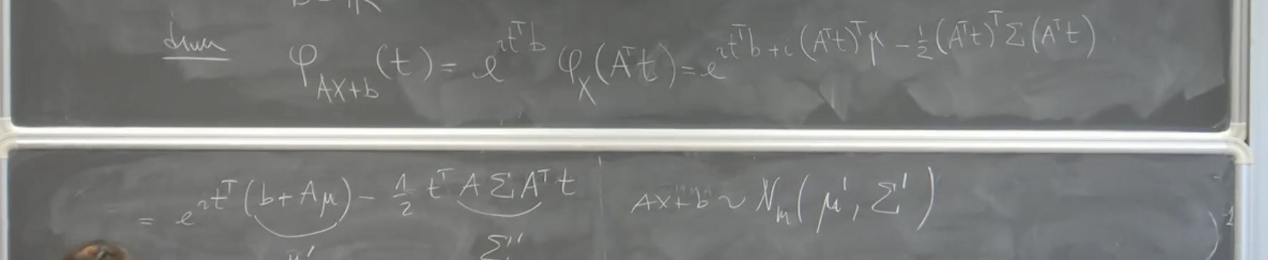 dim φ_{AX+b}(t) = e^{it^T b} φ_X(A^T t) = e^{it^T b + i(A^T t)^T μ - \frac{1}{2}(A^T t)^T Σ(A^T t)}
= e^{it^T(b+Aμ) - \frac{1}{2} t^T AΣA^T t} AX+b ~ N_m(μ', Σ')
μ' Σ'